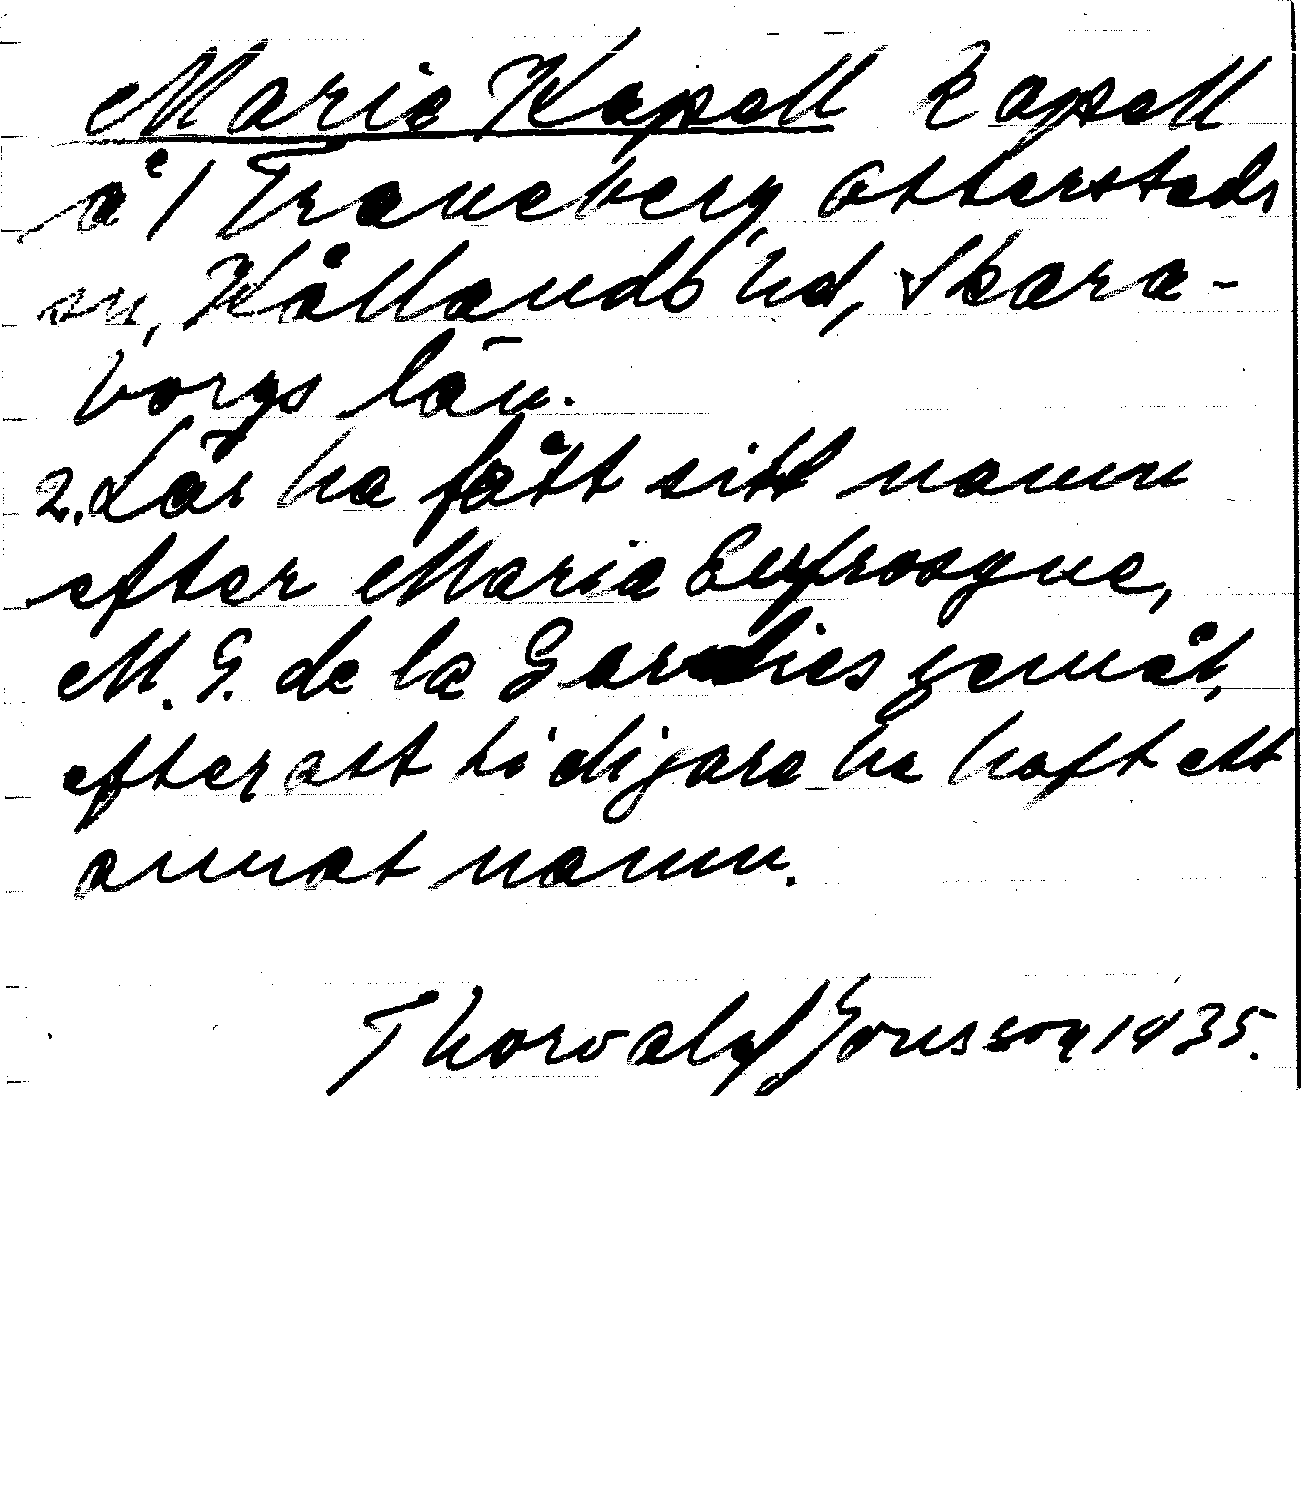 Maria Kapell Kapell
å 1 Traneberg, Otterstads
sn, Kållands hd, Skara-
borgs län.
2. Lär ha fått sitt namn
efter Maria Eufrosyne,
M. G. de la Gardies gemåt,
efter att tidigare ha haft ett
annat namn.
Thorvald Jonsson 1935.